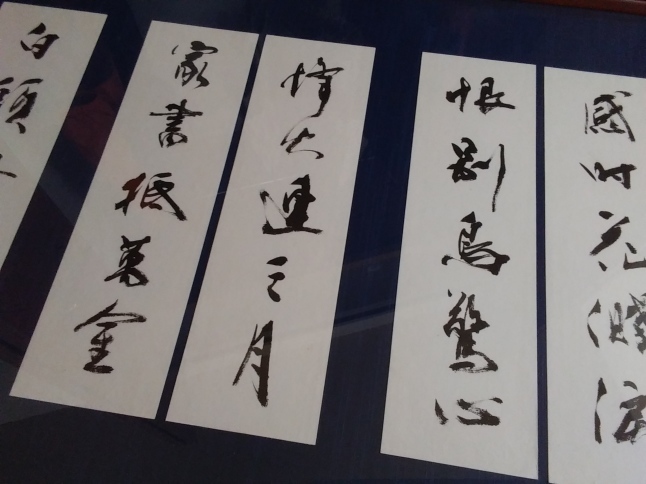 感時花濺淚
恨別鳥驚心
烽火連三月
家書抵萬金
白頭